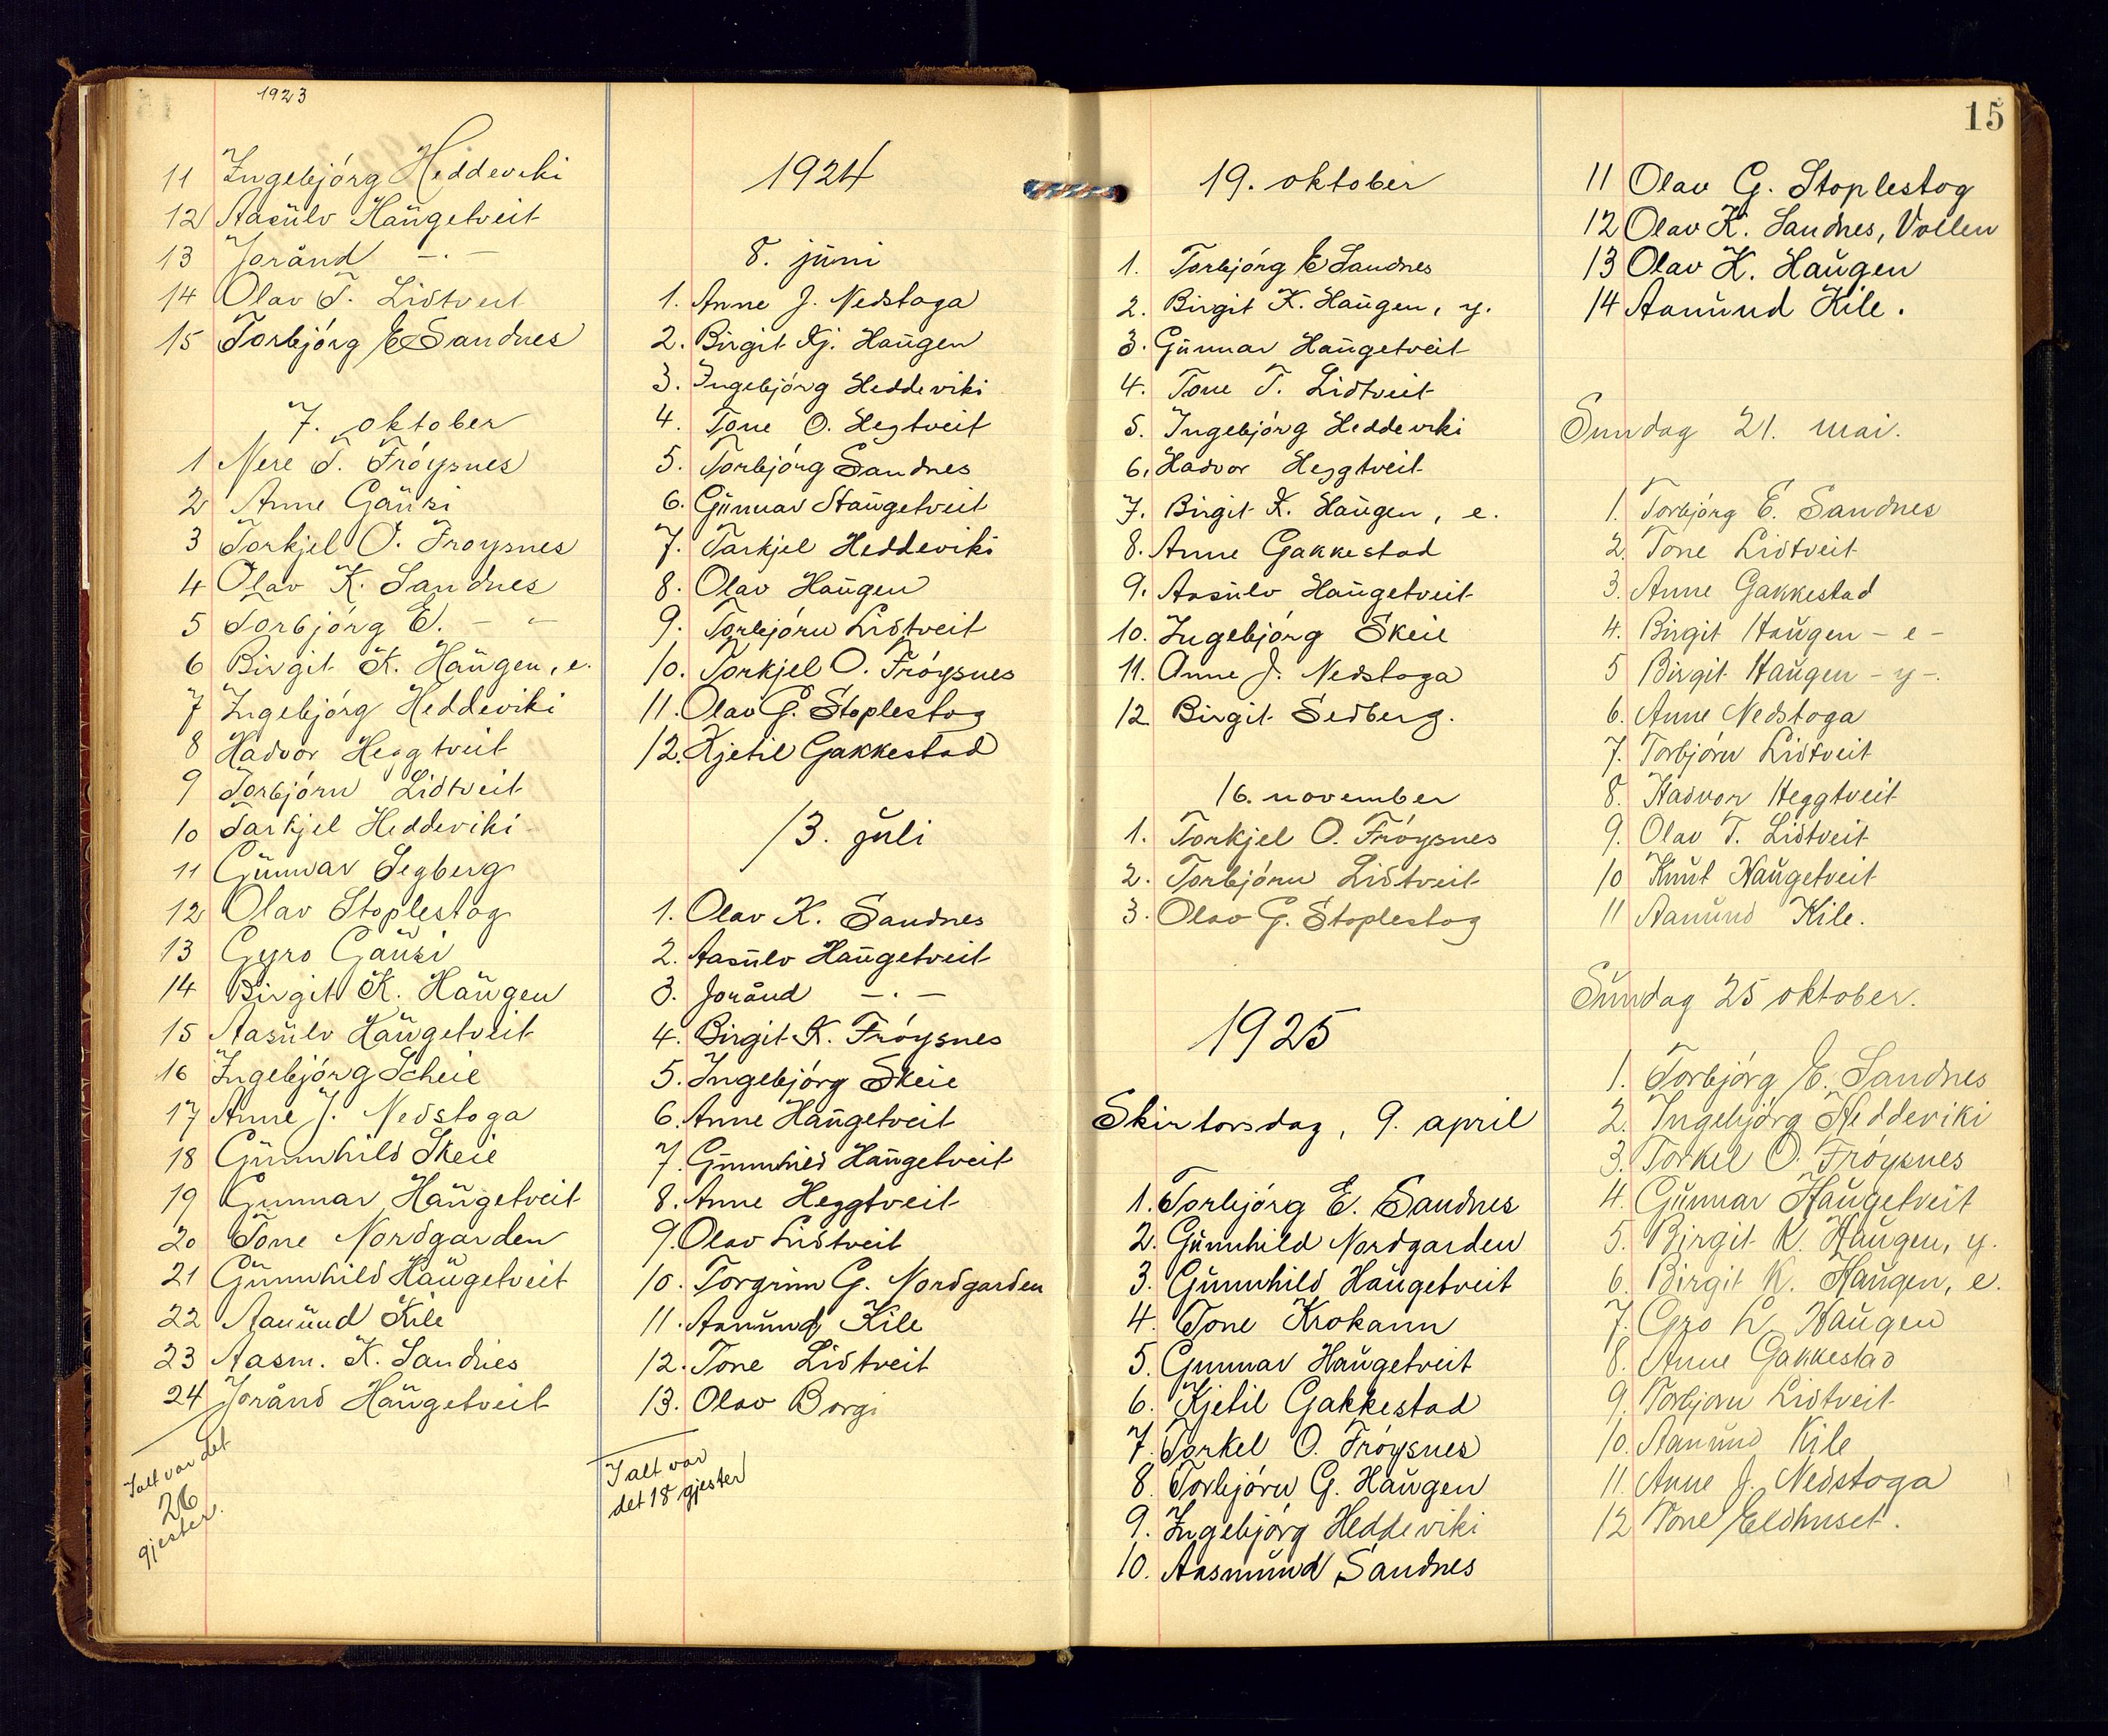 1923
11 Ingebjórg Heddeviki
12 Aasŭlv Haŭgetveit
13 Joránd — . —
14 Olav T. Lidtveit
15 Torbjórg E Sandnes
7. oktober
1 Nere T. Fróysnes
2 Anne Gaŭsi
3 Torkjel O. Froysnes
4 Olav K. Sandnes
5 Torbjórg E. — „ —
6 Birgit K. Haŭgen, e.
7 Ingebjórg Heddeviki
8 Hadvor Heggtveit
9 Torbjórn Lidtveit
10 Tarkjel Heddeviki
11 Gŭnnar Segberg
12 Olav Stoplestog
13 Gyro Gaŭsi
14 Birgit K. Haŭgen
15 Aasŭlv Haŭgetveit
16 Ingebjórg Scheie
17 Anne J. Nedstoga
18 Gŭnnhild Skeie
19 Gunnar Haŭgetveit
20 Tone Nordgarden
21 Gŭnnhild Haŭgetveit
22 Aanŭnd Kile
23 Aasm. K. Sandnes
24 Joránd Haŭgetveit
I alt var det
26
gjester.
1924
8. jŭni
1. Anne J. Nedstoga
2. Birgit Kj. Haŭgen
3. Ingebjórg Heddeviki
4. Tone O. Hegtveit
5. Torbjórg Sandnes
6. Gŭnnar Haŭgetveit
7. Tarkjel Heddeviki
8. Olav Haŭgen
9. Torbjórn Lidtveit
10. Torkjel O. Fróysnes
11. Olav G. Stoplestog
12. Kjetil Gakkestad
13. jŭli
1. Olav K. Sandnes
2. Aasŭlv Haŭgetveit
3. Joránd — . —
4. Birgit K. Fróysnes
5. Ingebjórg Skeie
6. Anne Haŭgetveit
7. Gŭnnhild Haŭgetveit
8. Anne Heggtveit
9. Olav Lidtveit
10. Torgrim G. Nordgarden
11. Aanŭnd Kile
12. Tone Lidtveit
13. Olav Borgi
I alt var
det 18 gjester
19. oktober
1. Torbjórg E Sandnes
2. Birgit K. Haŭgen, y.
3. Gŭnnar Haŭgetveit
4. Tone T. Lidtveit
5. Ingebjórg Heddeviki
6. Hadvor Heggtveit
7. Birgit K. Haŭgen, e.
8. Anne Gakkestad
9. Aasŭlv Haŭgetveit
10. Ingebjórg Skeie
11. Anne J. Nedstoga
12 Birgit Sedberg.
16. november
1. Torkjel O. Fróysnes
2. Torbjórn Lidtveit
3. Olav G. Stoplestog
1925
Skirtorsdag, 9. april
1. Torbjórg E. Sandnes
2. Gŭnnhild Nordgarden
3. Gŭnnhild Haŭgetveit
4. Tone Krokann
5. Gunnar Haŭgetveit
6. Kjetil Gakkestad
7. Torkel O. Fróysnes
8. Torbjórn G. Haŭgen
9. Ingebjórg Heddeviki
10. Aasmŭnd Sandnes
15
11 Olav G. Stoplestog
12 Olav K. Sandnes, Vollen
13 Olav K. Haŭgen
14 Aanŭnd Kile.
Sundag 21. mai.
1. Torbjórg E. Sandnes
2. Tone Lidtveit
3. Anne Gakkestad
4. Birgit Haŭgen - e -
5 Birgit Haŭgen - y -.
6. Anne Nedstoga
7. Torbjórn Lidtveit
8. Hadvor Heggtveit
9. Olav T. Lidtveit
10 Knŭt Haŭgetveit
11 Aanŭnd Kile.
Sŭndag 25 oktober.
1. Torbjórg E. Sandnes
2. Ingebjórg Heddeviki
3. Torkel O. Fróysnes
4. Gŭnnar Haŭgetveit
5. Birgit K. Haŭgen, y.
6. Birgit K. Haŭgen, e.
7. Gro L. Haŭgen
8. Anne Gakkestad
9. Torbjorn Lidtveit
10. Aanŭnd Kile
11. Anne J. Nedstoga
12 Tone Eldhuset.